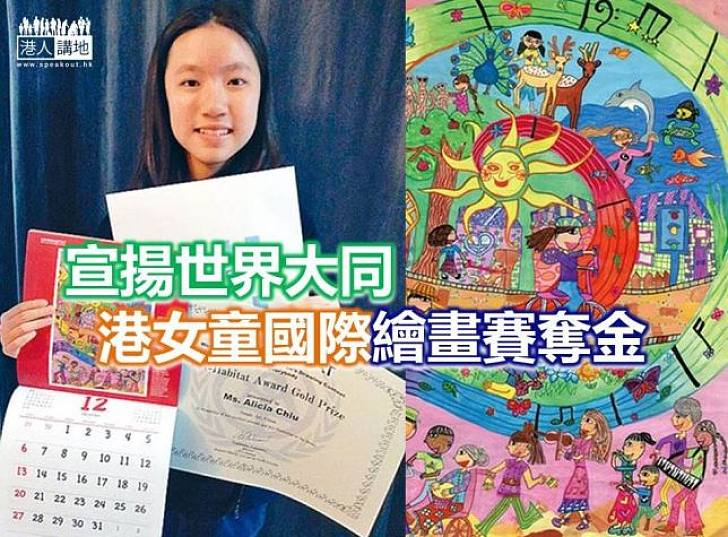 港人講地
www.speakout.hk
宣揚世界大同
港女童國際繪畫賽奪金
Habitat Award Gold Prize
Ms. Alicia Chiu
12
1 2 3 4 5
6 7 8 9 10 11 12
13 14 15 16 17 18 19
20 21 22 23 24 25 26
27 28 29 30 31